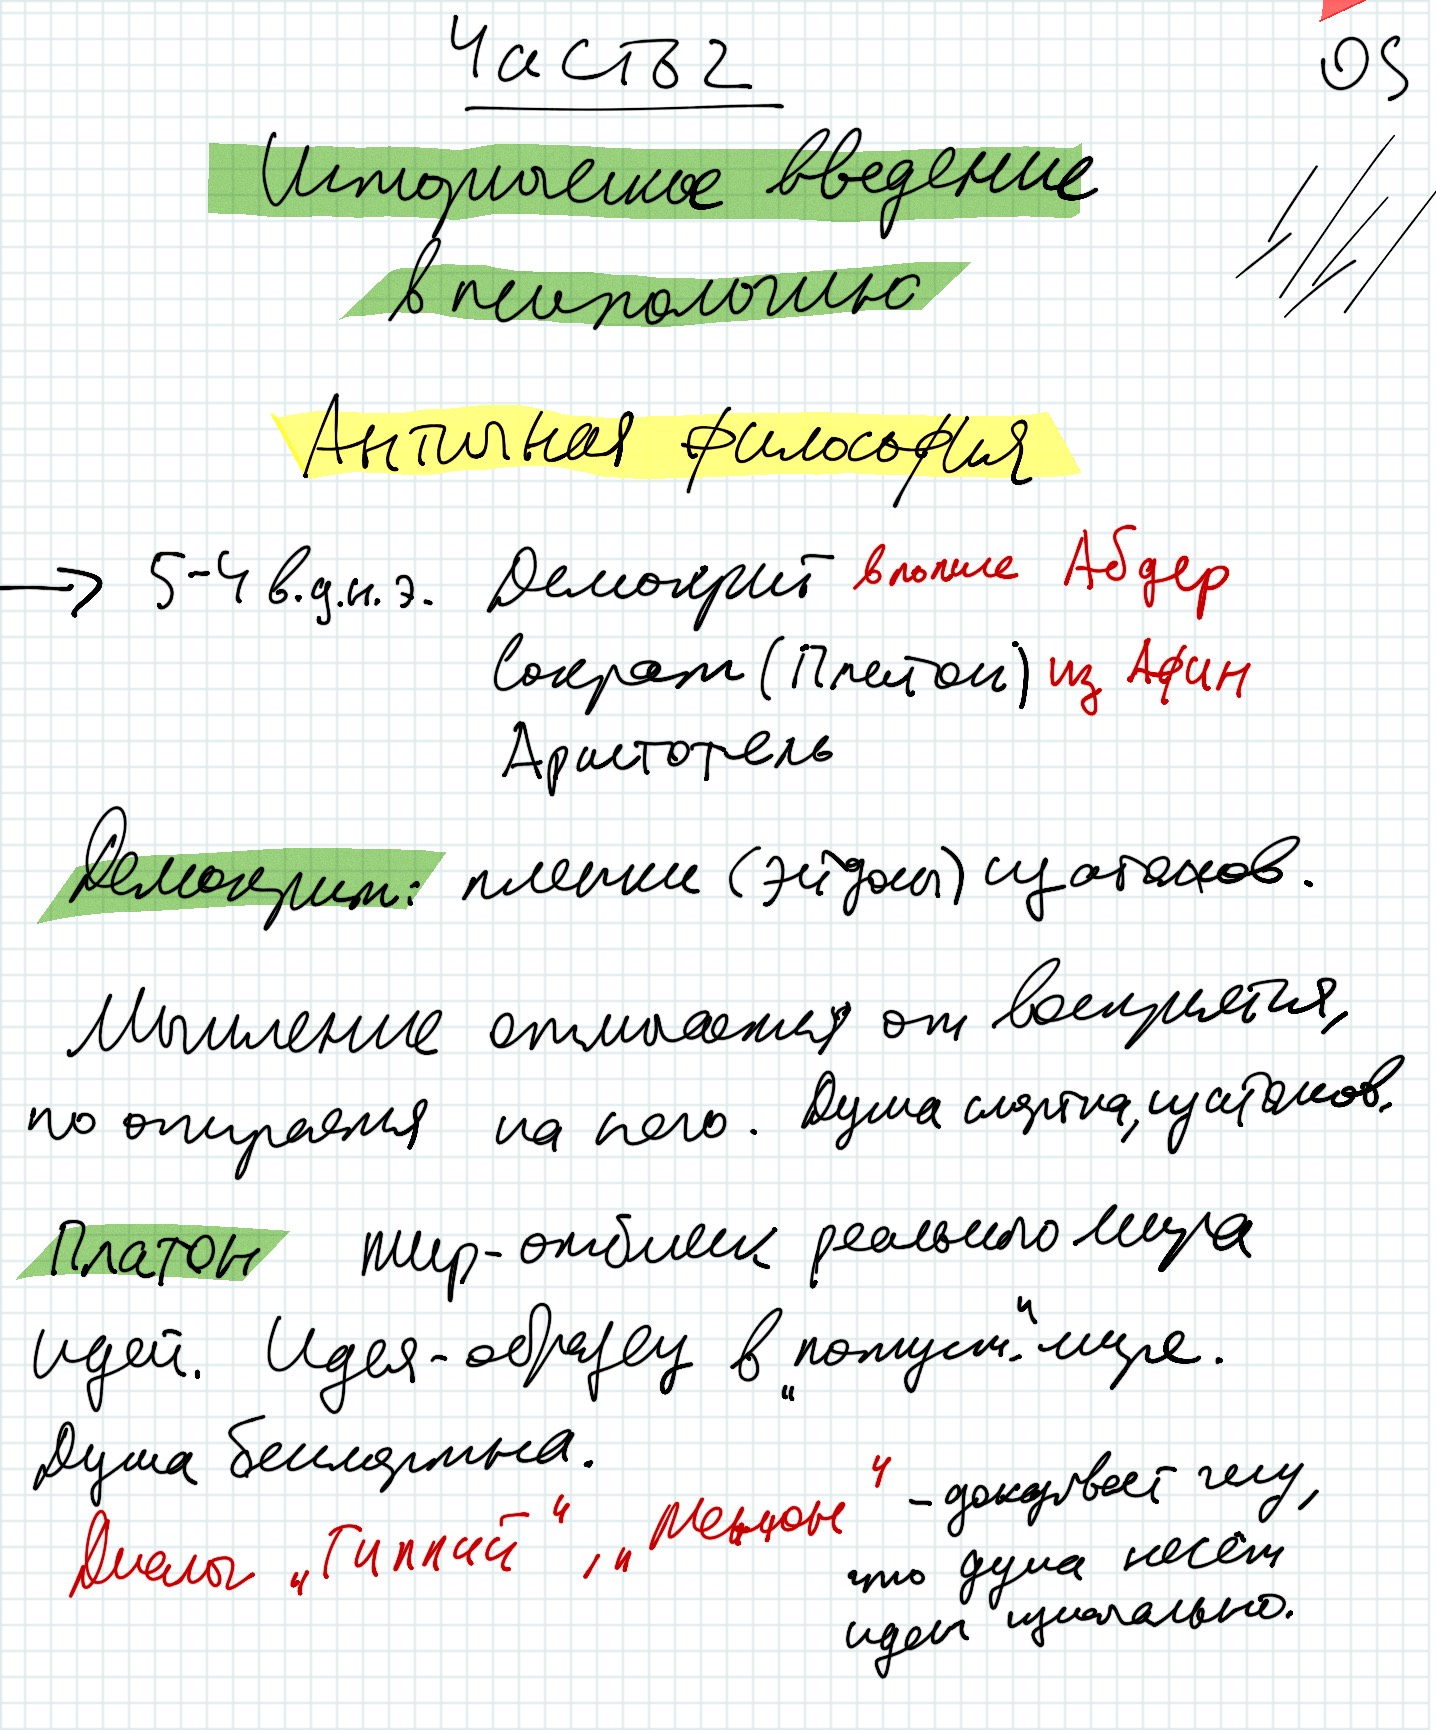 Часть 2
05
Историческое введение
в психологию
Античная философия
→ 5-4 в.д.н.э. Демокрит в полисе Абдер
Сократ (Платон) из Афин
Аристотель
Демокрит: пленки (эйдосы) из атомов.
Мышление отличается от восприятия,
но опирается на него. Душа смертна, из атомов.
Платон Мир-отблеск реального мира
идей. Идея-образец в „потуст." мире.
Душа бессмертна.
Диалоги „Гиппий", „Менон" - доказывает
что душа несёт
идеи изначально.